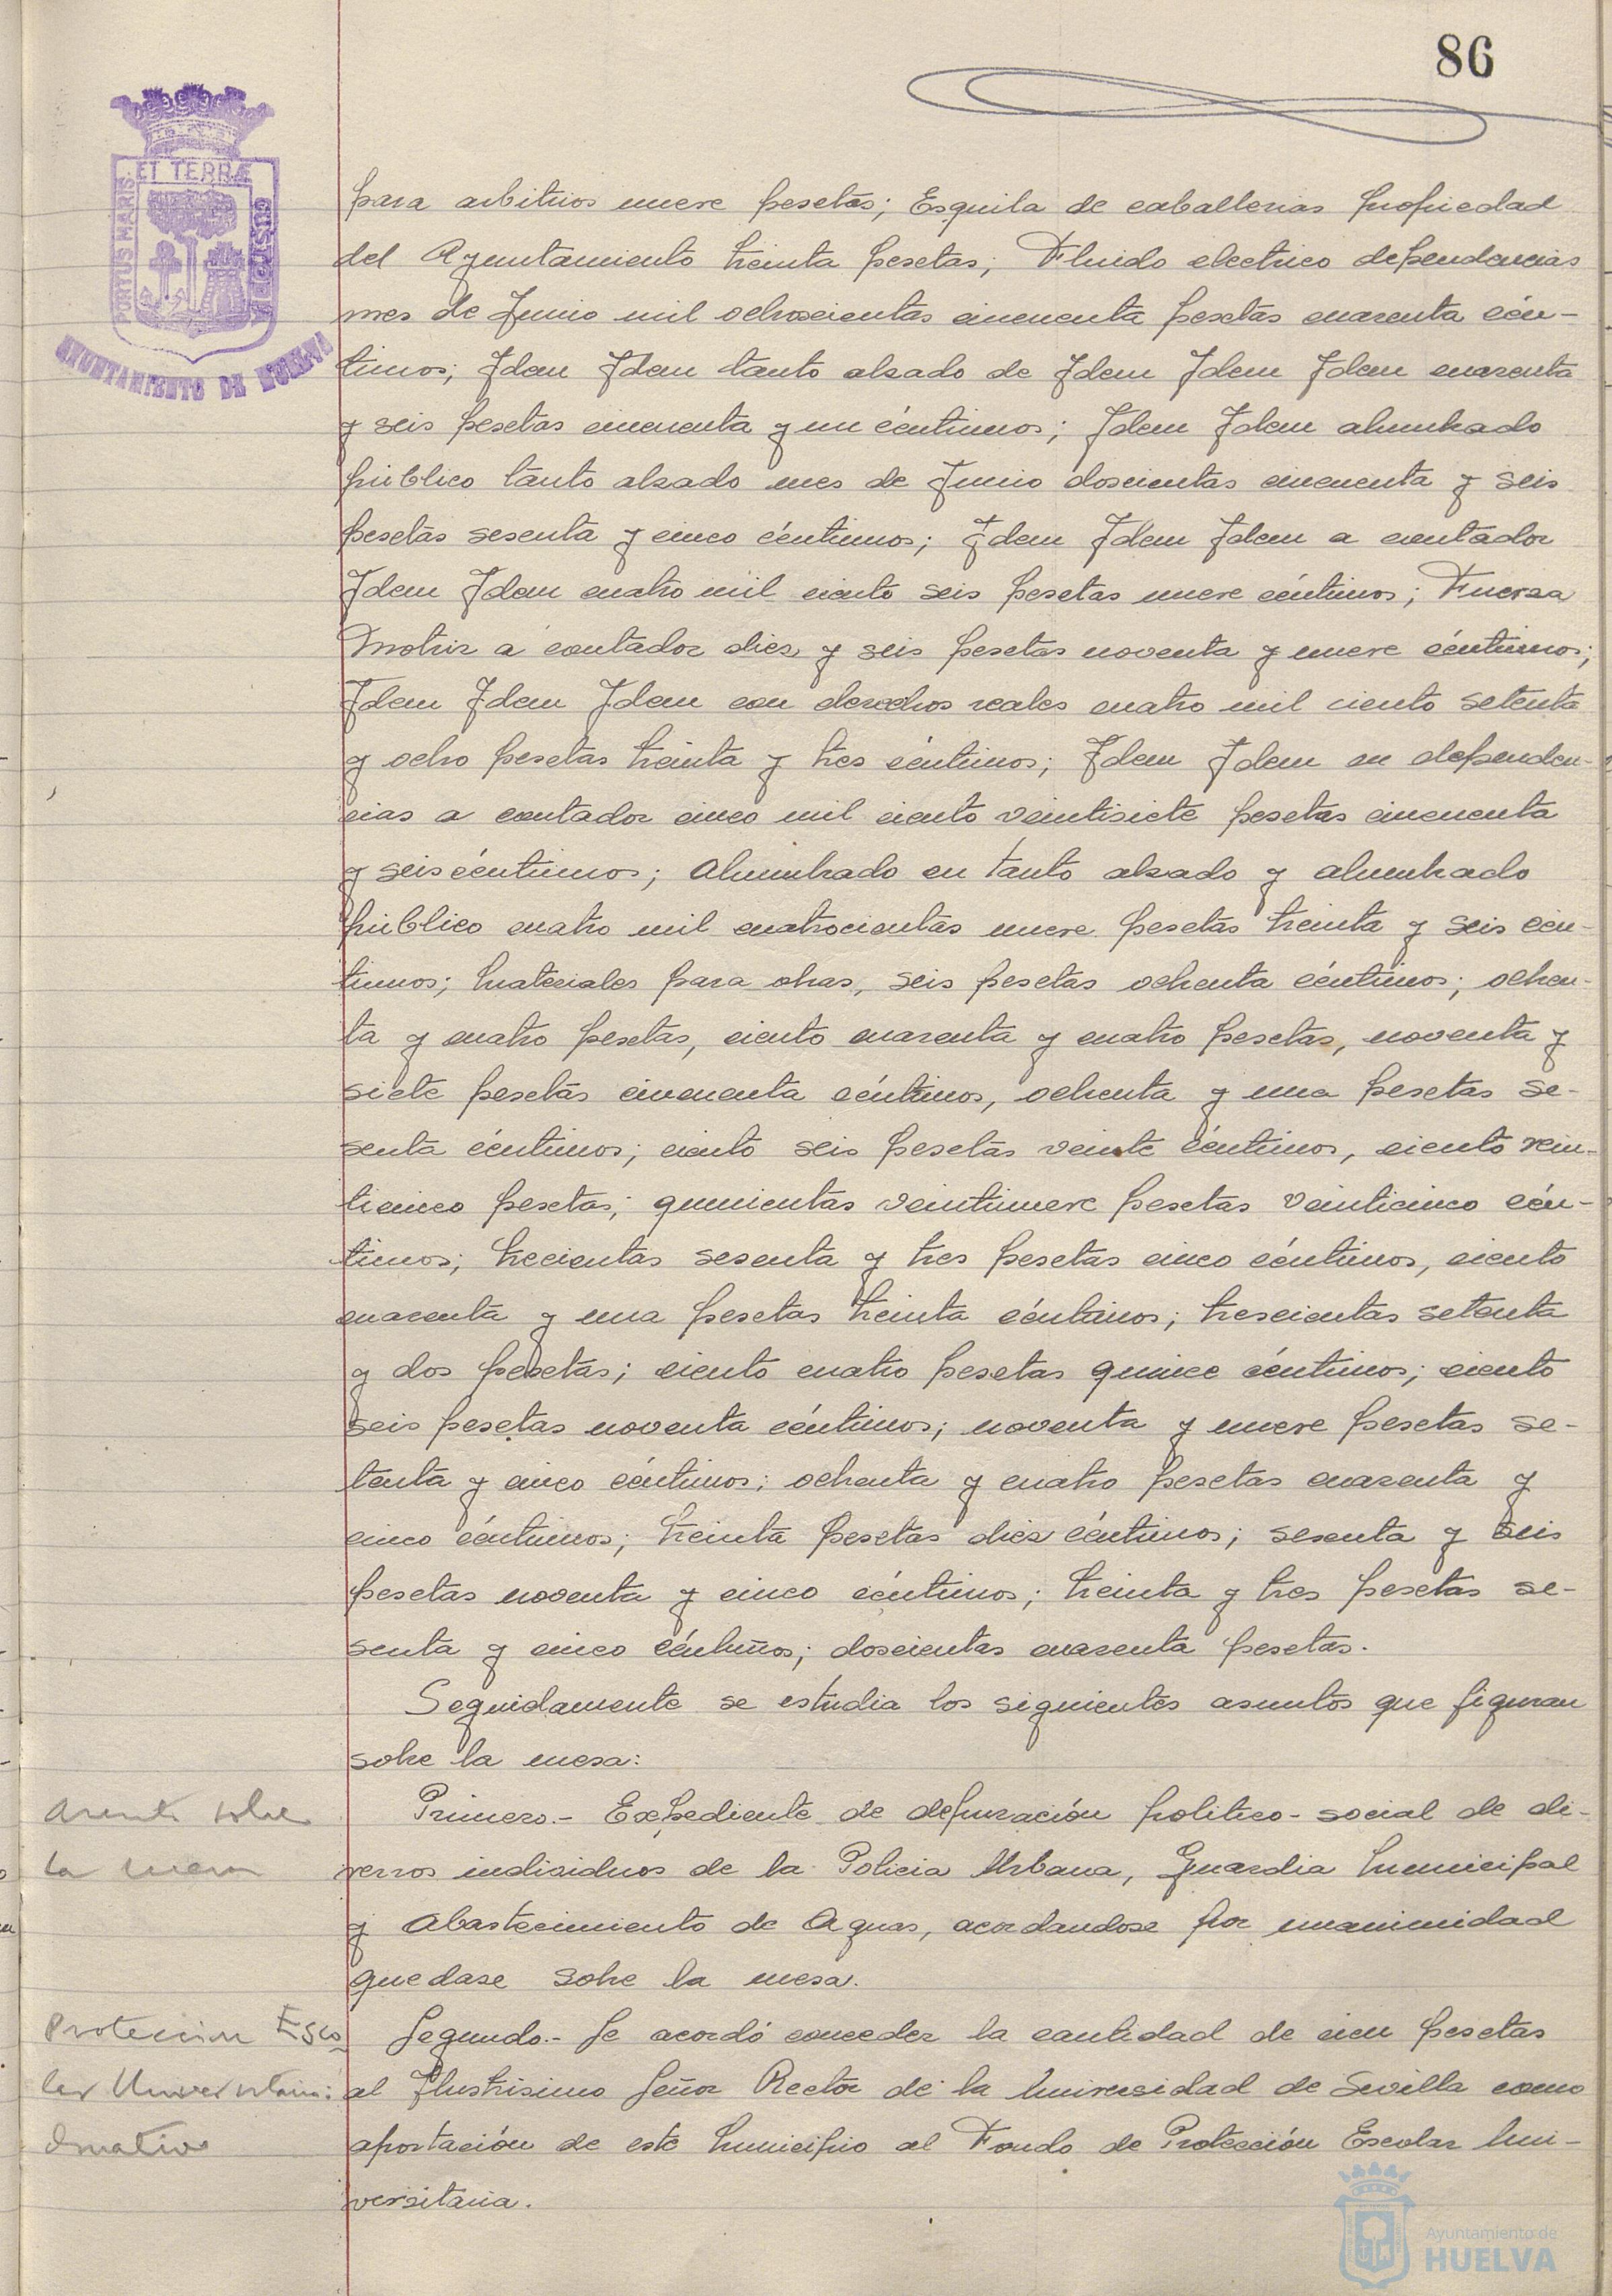 86
PORTUS MARIS ET TERRÆ CUSTODIA
AYUNTAMIENTO DE HUELVA
para arbitrios nueve pesetas; Esquila de caballerias propiedad
del Ayuntamiento treinta pesetas; Fluido electrico dependencias
mes de Junio mil ochoscientas cincuenta pesetas cuarenta cén-
timos; Jdem Jdem tanto alzado de Jdem Jdem Jdem cuarenta
y seis pesetas cincuenta y un céntimos; Jdem Jdem alumbrado
público tanto alzado mes de Junio doscientas cincuenta y seis
pesetas sesenta y cinco céntimos; Jdem Jdem Jdem a contador
Jdem Jdem cuatro mil ciento seis pesetas nueve céntimos; Fuerza
Motriz a contador diez y seis pesetas noventa y nueve céntimos;
Jdem Jdem Jdem con derechos reales cuatro mil ciento setenta
y ocho pesetas treinta y tres céntimos; Jdem Jdem en dependen-
cias a contador cinco mil ciento veintisiete pesetas cincuenta
y seis céntimos; Alumbrado en tanto alzado y alumbrado
público cuatro mil cuatrocientas nueve pesetas treinta y seis cén-
timos; Materiales para obras, seis pesetas ochenta céntimos; ochen-
ta y cuatro pesetas, ciento cuarenta y cuatro pesetas, noventa y
siete pesetas cincuenta céntimos, ochenta y una pesetas se-
senta céntimos; ciento seis pesetas veinte céntimos, ciento vein-
ticinco pesetas; quinientas veintinueve pesetas veinticinco cén-
timos; trecientas sesenta y tres pesetas cinco céntimos, ciento
cuarenta y una pesetas treinta céntimos; trescientas setenta
y dos pesetas; ciento cuatro pesetas quince céntimos; ciento
seis pesetas noventa céntimos; noventa y nueve pesetas se-
tenta y cinco céntimos; ochenta y cuatro pesetas cuarenta y
cinco céntimos; treinta pesetas diez céntimos; sesenta y seis
pesetas noventa y cinco céntimos; treinta y tres pesetas se-
senta y cinco céntimos; doscientas cuarenta pesetas.
Seguidamente se estudia los siguientes asuntos que figuran
sobre la mesa:
Asunto sobre
la mesa
Primero.- Expediente de depuración politico-social de di-
versos individuos de la Policia Urbana, Guardia Municipal
y Abastecimiento de Aguas, acordandose por unanimidad
quedase sobre la mesa.
Proteccion Esco
lar Universitaria:
Donativo
Segundo.- Se acordó conceder la cantidad de cien pesetas
al Jlustrisimo Señor Rector de la Universidad de Sevilla como
aportación de este Municipio al Fondo de Protección Escolar Uni-
versitaria.
Ayuntamiento de
HUELVA